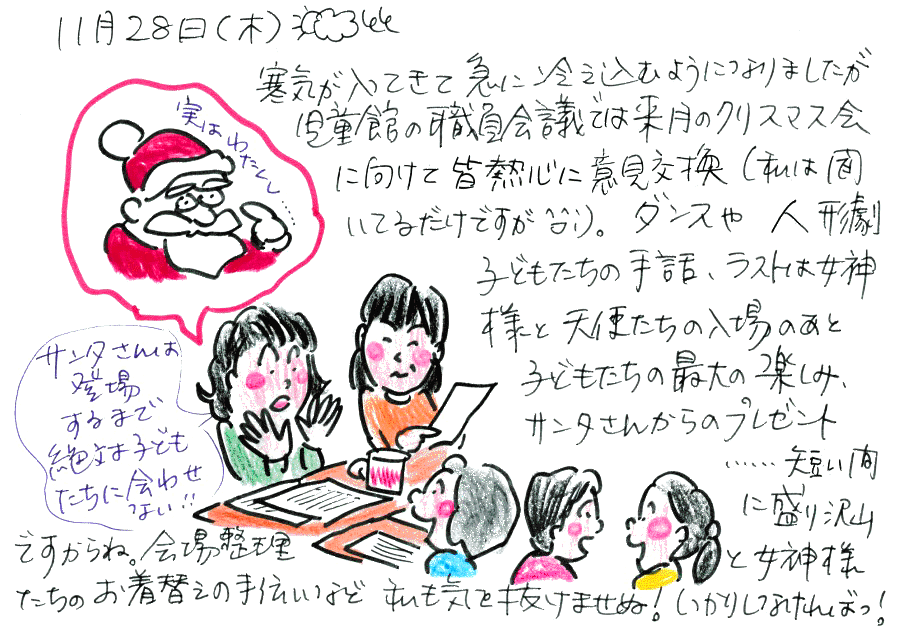 11月28日(木)
寒気が入ってきて急に冷え込むようになりましたが
児童館の職員会議では来月のクリスマス会
に向けて皆熱心に意見交換(私は聞
いてるだけですが^^;)。ダンスや人形劇
子どもたちの手話、ラストは女神
様と天使たちの入場のあと
子どもたちの最大の楽しみ、
サンタさんからのプレゼント
……短い間
に盛り沢山
ですからね。会場整理と女神様
たちのお着替えの手伝いなど私も気を抜けませぬ!しっかりしなければっ!
実はわたくし……
サンタさんは
登場
するまで
絶対子ども
たちに会わせ
ない!!